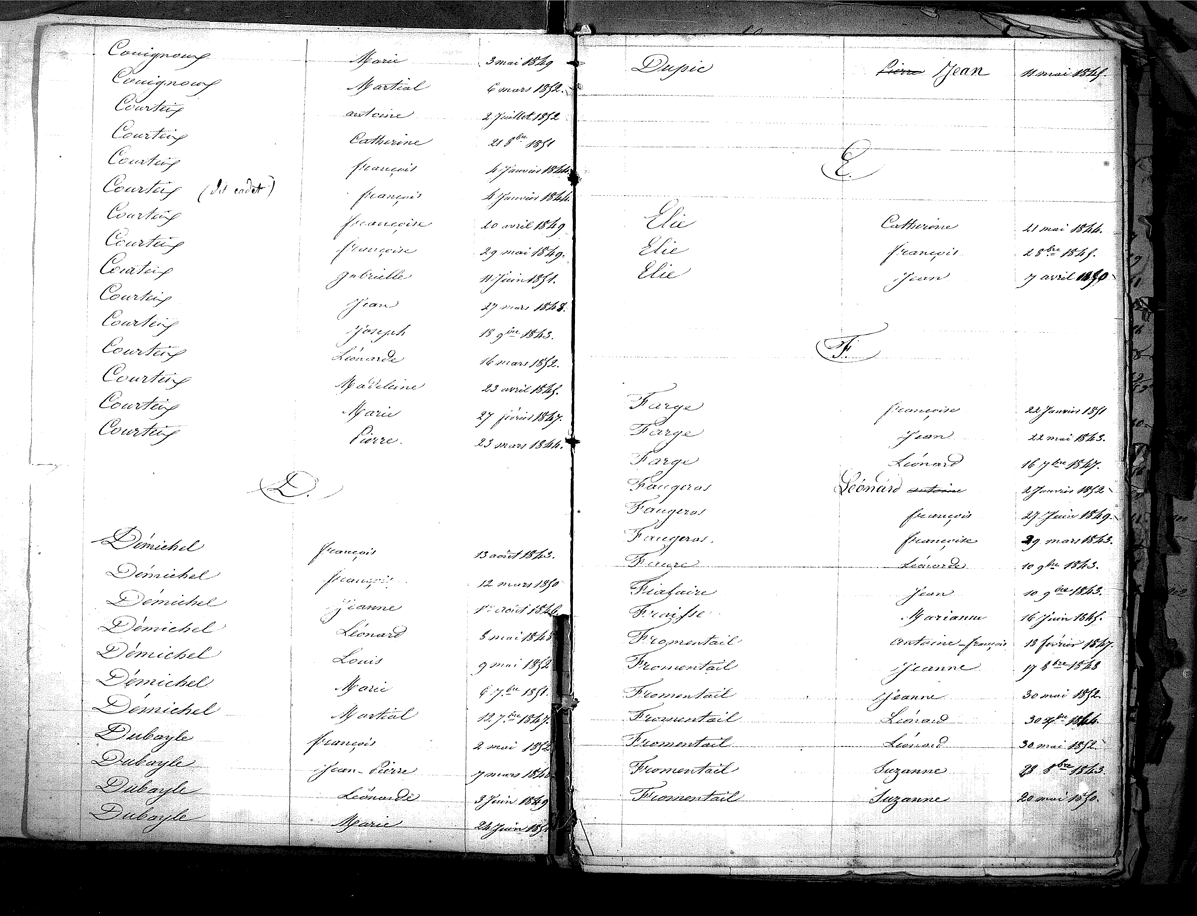 Couignoux Marie 3 mai 1849
Couignoux Martial 6 mars 1852.
Courteix antoine 2 Juillet 1852
Courteix Catherine 21 8bre 1851
Courteix françois 4 Janvier 1844
Courteix (dit cadet) françois 4 Janvier 1844
Courteix françoise 20 avril 1849
Courteix françoise 29 mai 1849.
Courteix gabrielle 11 Juin 1851.
Courteix Jean 27 mars 1848.
Courteix Joseph 18 9bre 1843.
Courteix Léonarde 16 mars 1852.
Courteix Madeleine 23 avril 1845.
Courteix Marie 27 février 1847.
Courteix Pierre. 23 mars 1844.
D.
Démichel françois 13 août 1843.
Démichel françois 12 mars 1850
Démichel Jeanne 1er août 1846
Démichel Léonard 3 mai 1845
Démichel Louis 9 mai 1852
Démichel Marie 6 7bre 1851.
Démichel Martial 12 7bre 1847.
Dubayle françois 2 mai 1852
Dubayle Jean-Pierre 7 mars
Dubayle Léonarde 3 Juin 1849
Dubayle Marie 24 Juin
Dupic Pierre Jean 11 mai 1845.
E.
Elie Catherine 21 mai 1844.
Elie françois 2 8bre 1845.
Elie Jean 7 avril 1850
F.
Farge françoise 22 Janvier 1851
Farge Jean 22 mai 1843.
Farge Léonard 16 7bre 1847.
Faugeras Léonard antoine 2 Janvier 1852
Faugeras françois 27 Juin 1849
Faugeras. françoise 29 mars 1843.
Faure Léonarde 10 9bre 1843.
Fiafaire Jean 10 9bre 1843.
Fraisse Marianne 16 Juin 1845.
Fromentail antoine-françois 18 février 1847.
Fromentail Jeanne 17 8bre 1848
Fromentail Jeanne 30 mai 1852.
Fromentail Léonard 30 1844.
Fromentail Léonard 30 mai 1852
Fromentail Suzanne 28 8bre 1843.
Fromentail Suzanne 20 mai 1850.